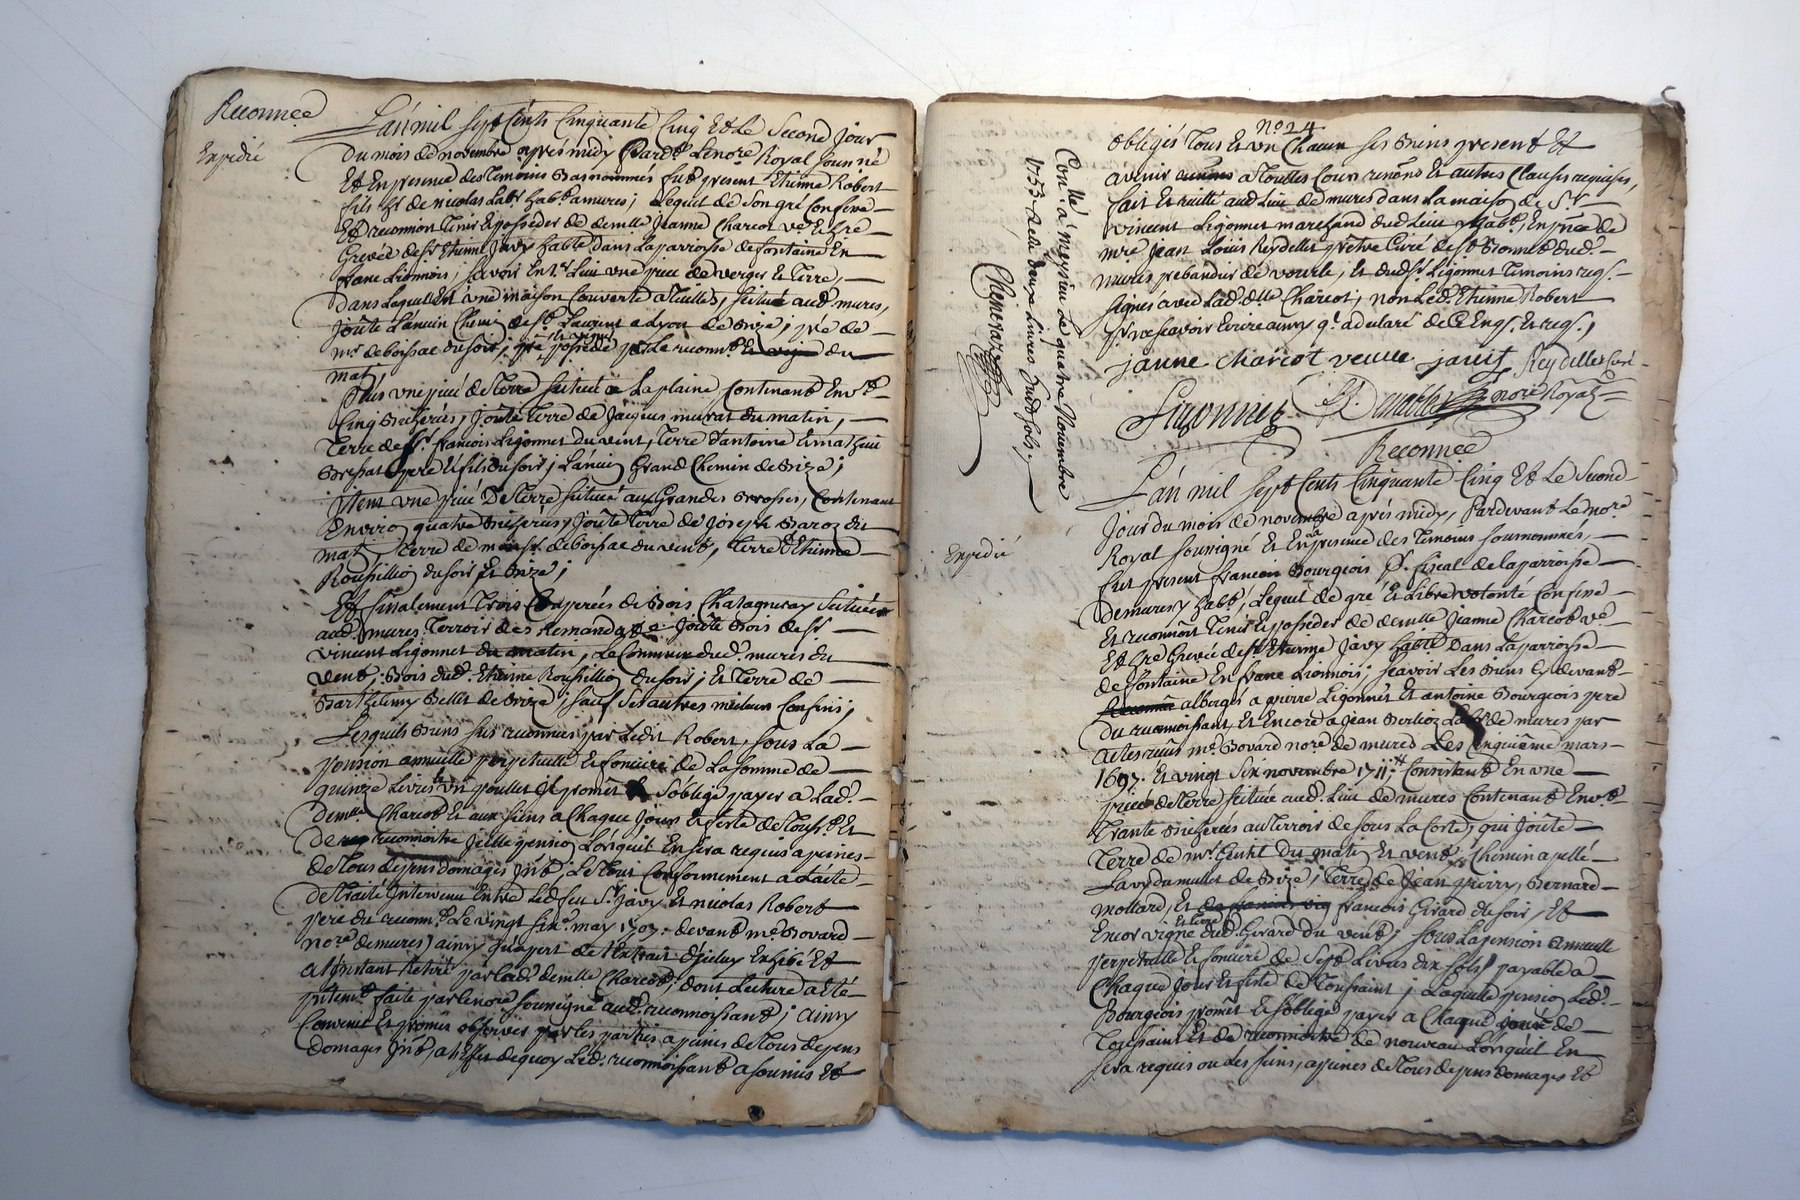 Reconnce
Expedié
L'an mil sept Cents Cinquante Cinq Et Le Second Jour
du mois de novembre apres midy Pardt Lenore Royal soussné
Et En presence des Temoins Bas nommés fut present Etienne Robert
fils de nicolas Labr habt a mures, Lequel de son gré Confesse
Et reconnoit Tenir Et posseder de demlle Jeanne Charcot ve Et hre
Grevée de sr Etienne Javy habte dans La parroisse de fontaine En
franc Lionnois, savoir En Lieu une piece de verger Et Terre,
dans Laquelle Est une maison Couverte a Tuilles, scituée aud. mures,
Joûte L'ancien Chemin de st Laurent a Lyon de Bize; pré de
mr de boissac du soir; pré possedé par Le reconnt du
mat,
Plus une piece de Terre scituée a La plaine Contenant Env.
Cinq Bicherées, Joûte Terre de Jacques murat du matin,
Terre de sr francois Ligonnet du vent, Terre d'antoine Et mathieu
Bressat pere Et fils du soir; L'ancien Grand Chemin de Bize;
Item une piece De Terre scituée aux Grandes Brosses, Contenant
Environ quatre Bicherées, Joûte Terre de Joseph Baroz du
mat, Terre de monsr. de boissac du vent, Terre d'Etienne
Roussillon du soir Et Bize;
Et finalement Trois Couperées de Bois Chatagneray Scituées
aud. mures Terroir des Joûte Bois de sr
vincent Ligonnet du matin, Le Commun dud. mures du
vent; Bois dud. Etienne Roussillon du soir; Et Terre de
Barthelemy Bellet de Bize; sauf Ses autres meilleurs Confins;
Lesquels Biens sus reconnus par Ledit Robert, sous La
pension annuelle perpetuelle Et fonciere de La somme de
quinze Livres Et un poullet Il promet S'oblige payer a Lad.
demlle Charcot Et aux siens a Chaque Jour Et feste de Toust. Et
De reconnoitre Jcelle pension Lorsquil En sera requis a peines
de Tous depens domages Jnt, Le Tout Conformement a L'acte
de Traité Jntervenu Entre Led. feu Sr. Javy Et nicolas Robert
pere du reconnt Le vingt six. may 1707. devant me Bovard
nore de mures, ainsy qu'apert de l'Extrait d'Jceluy Exhibé Et
a L'instant Retiré par Lad. demlle Charcot, dont Lecture a Eté
faite par Lenore soussigné aud. reconnoissant; ainsy
Convenu Et promis observer par les parties a peines de Tous depens
domages Jnt, a L'Effet de quoy Led. reconnoissant a soumis Et
No 24
Conlle. a meysieu Le quatre Novembre
1755 Reçu deux Livres sols
Chenevaz
obligés Tous Et un Chacun ses Biens present Et
avenir a Touttes Cours Et autres Clauses requises,
fait Et recitté aud Lieu de mures dans La maison de Sr.
vincent Ligonnet marchand dud. Lieu En pnce de
mre Jean Louis Reydellet prêtre Curé de st Bonnet dud.
mures prebandier de vourle, Et dud. Sr. Ligonnet Temoins req.
signés avec Lad. dlle Charcot, non Led. Etienne Robert
pr. ne scavoir Ecrire ainsy q. a declaré de Ce Enq. Et req.,
janne charcot veuve javit Reydellet curé
Ligonnet nore Royal
Reconnce
Expedié
L'an mil sept Cents Cinquante Cinq Et Le Second
Jour du mois de novembre apres midy, Pardevant Le nore
Royal soussigné Et En La presence des Temoins sousnommés,
fut present francois Bourgeois p. fiscal de la parroisse
de mures y habt, Lequel de gré Et Libre volonté Confesse
Et reconnoit Tenir Et posseder de demlle Jeanne Charcot ve
Et hre Grevée de sr Etienne Javy habte Dans La parroisse
de fontaine En franc Lionnois, scavoir Les Biens Cy devant
albergés a pierre Ligonnet Et antoine Bourgeois pere
du reconnoissant, Et Encore a Jean Berlioz de mures par
actes reçus me. Bovard nore de mures Les Cinquième mars
1697. Et vingt Six novembre 1711. Consistant En une
piece de Terre scituée aud. Lieu de mures Contenant Env.
Trante Bicherées au Terroir de sous La Coste, qui Joûte
Terre de mr. Gentil du mat Et vent, Chemin apellé
Lavy du mullet de Bize; Terre de Jean pierry, Bernard
Mollard, Et francois Girard du soir, Et
Encor vigne Et Terre dud. Girard du vent; sous La pension annuelle
perpetuelle Et fonciere de Sept Livres dix sols payable a
Chaque Jour Et feste de Toussaint, Laquelle pension Led.
Bourgeois promet Et s'oblige payer a Chaque Jour de
Toussaint Et de reconnoitre de nouveau Lorsquil En
sera requis ou Les siens, a peines de Tous depens domages Et